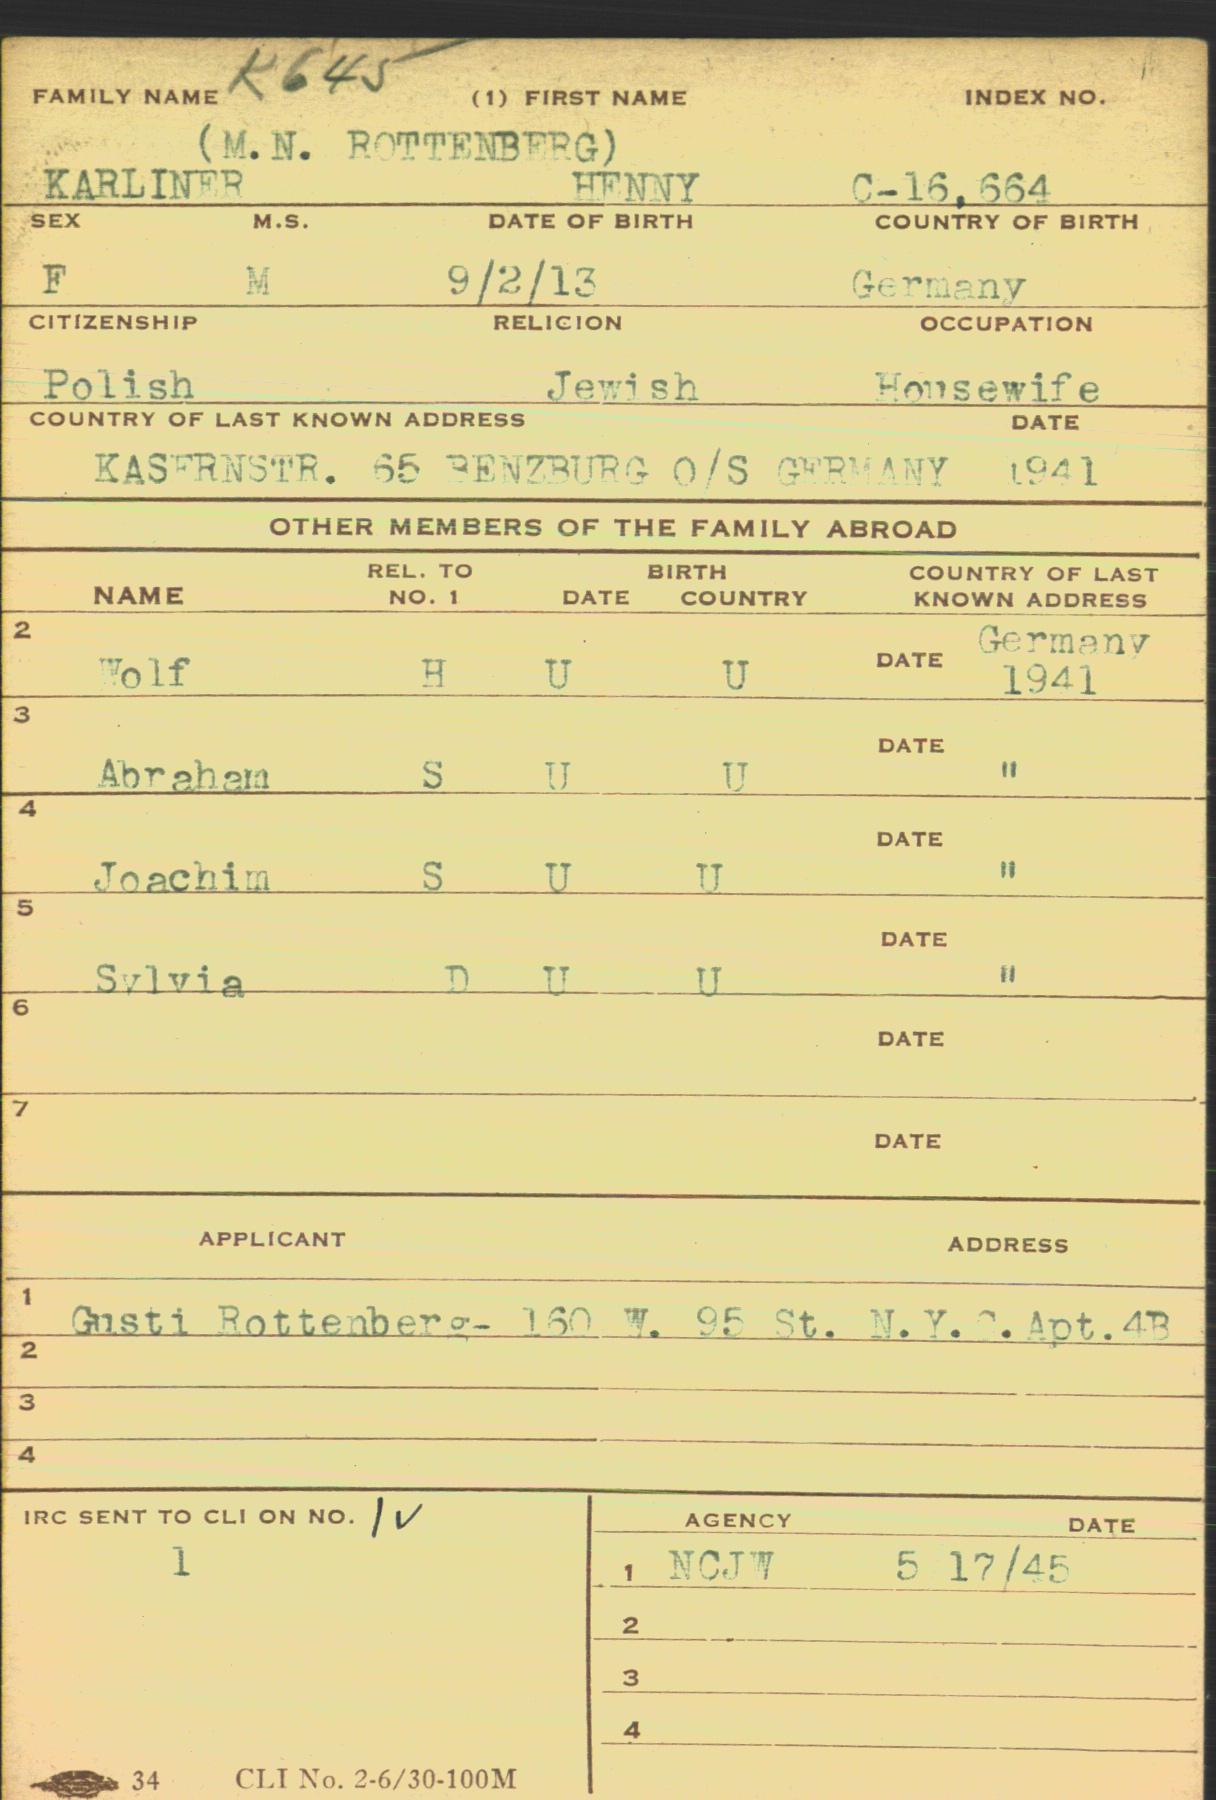 K645
FAMILY NAME (1) FIRST NAME INDEX NO.
(M.N. ROTTENBERG)
KARLINER HENNY C-16,664
SEX M.S. DATE OF BIRTH COUNTRY OF BIRTH
F M 9/2/13 Germany
CITIZENSHIP RELIGION OCCUPATION
Polish Jewish Housewife
COUNTRY OF LAST KNOWN ADDRESS DATE
KASERNSTR. 65 BENZBURG O/S GERMANY 1941
OTHER MEMBERS OF THE FAMILY ABROAD
REL. TO BIRTH COUNTRY OF LAST
NAME NO. 1 DATE COUNTRY KNOWN ADDRESS
2 Germany
Wolf H U U DATE 1941
3 DATE
Abraham S U U "
4 DATE
Joachim S U U "
5 DATE
Sylvia D U U "
6 DATE
7 DATE
APPLICANT ADDRESS
1 Gusti Rottenberg- 160 W. 95 St. N.Y.C. Apt.4B
2
3
4
IRC SENT TO CLI ON NO. 1 ✓
1
AGENCY DATE
1 NCJW 5 17/45
2
3
4
34 CLI No. 2-6/30-100M